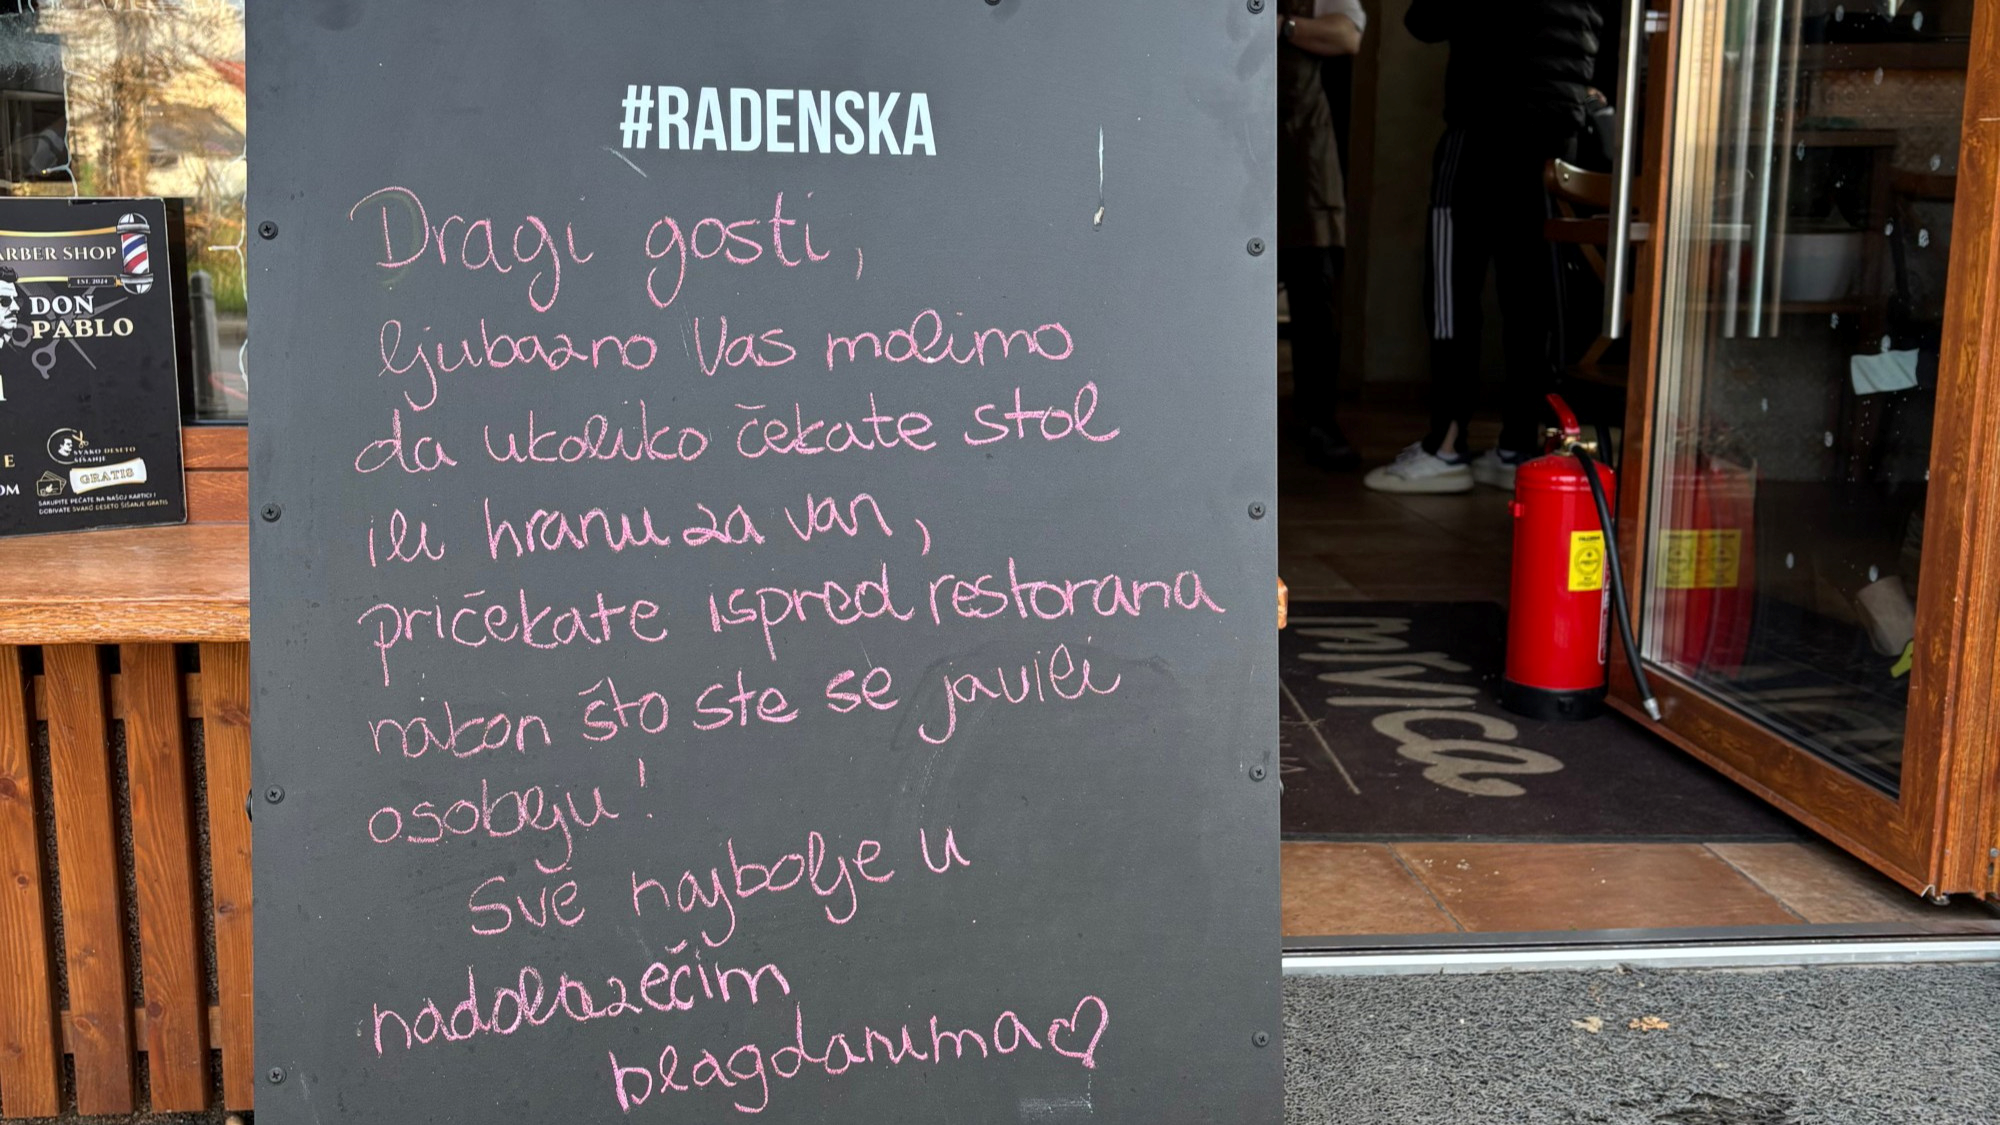 #RADENSKA
Dragi gosti,
ljubazno Vas molimo
da ukoliko čekate stol
ili hranu za van,
pričekate ispred restorana
nakon što ste se javili
osoblju!
Sve najbolje u
nadolazećim
blagdanima♡
BARBER SHOP
EST. 2024
DON
PABLO
SVAKO DESETO
ŠIŠANJE
GRATIS
SAKUPITE PEČATE NA NAŠOJ KARTICI I
DOBIVATE SVAKO DESETO ŠIŠANJE GRATIS
mrvica